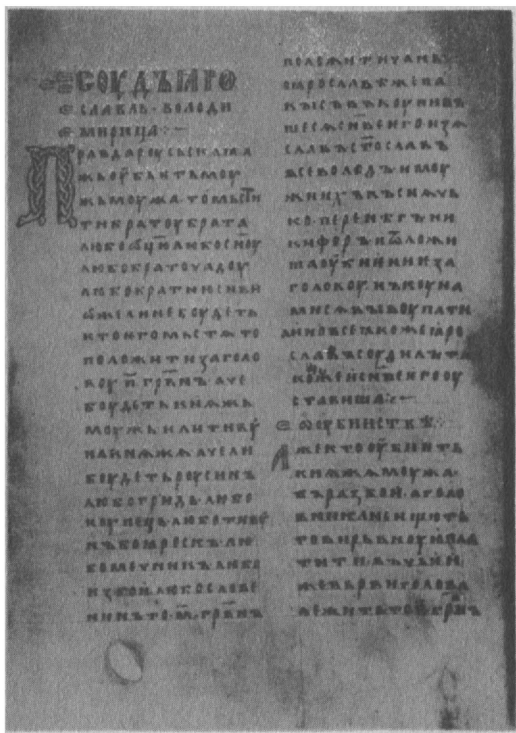 СОУДЪ ꙖРО
СЛАВЛЬ · ВОЛОДИ
МИРИЦА :·—
Правда роусьскаꙗ а
жь оубьѥть моу
жь моужа · то мьсти
ти братоу брата
любо ѡц҃ю любо сн҃оу
любо братоучадоу
любо братню сн҃ви
ѡже ли не боудеть
кто ѥго мьстѧ то
положити за голо
воу п҃ грв҃нъ аче
боудеть кнѧжь
моужь или тивоу
на кнѧжа аче ли
боудеть роусинъ
любо гридь любо
коупець любо тивоу
нъ боꙗрескъ лю
бо мечникъ любо
изгои любо слове
нинъ то м҃ грв҃нъ
положити за нь по
ꙗрославѣ же па
кы съвъкоупивъ
шесѧ сн҃ве ѥго изѧ
славъ ст҃ославъ
всеволодъ и моу
жи ихъ къснѧчь
ко перенѣгъ ни
кифоръ и ѿложи
ша оубиѥниѥ за
голову нъ коуна
ми сѧ выкоупати
а ино все ꙗкоже ꙗро
славъ соудилъ та
коже и сн҃ве ѥго оу
ставиша :·—
ѡ оубииствѣ :·
Аже кто оубиѥть
кнѧжа моужа
въ разбои · а голо
вника не ищють
то вирьвноую пла
тити въ чьѥи
же верви голова
лежить то п҃ грв҃нъ